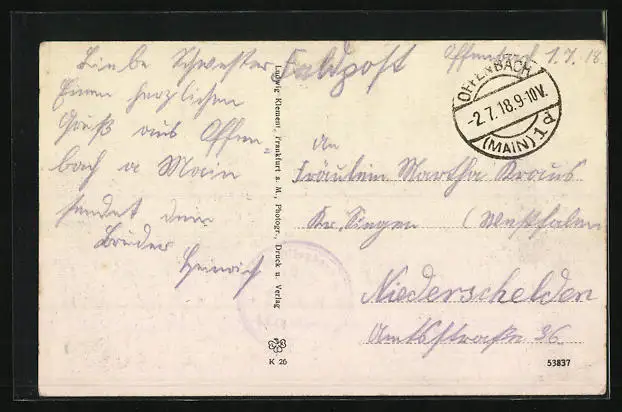 Feldpost
Offenbach 1.7.18
Liebe Schwester
Einen herzlichen
Gruß aus Offen
bach a Main
sendet dein
Bruder
Heinrich
Ludwig Klement, Frankfurt a. M., Photogr., Druck u. Verlag
K 26
OFFENBACH
-2.7.18.9-10V.
(MAIN) 1 P
An
Fräulein Martha Kraus
Kr. Siegen (Westfalen
Niederschelden
Amtsstraße 26
53837